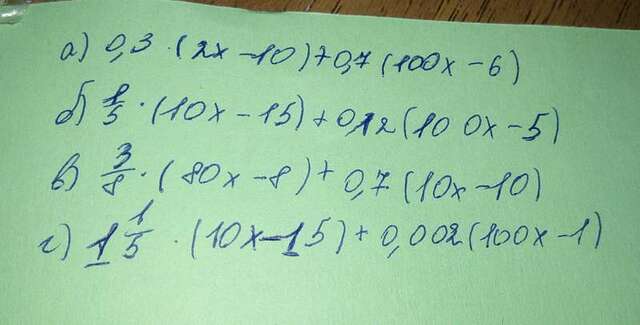 а) 0,3 · (2x - 10) + 0,7 (100x - 6)
б) 1/5 · (10x - 15) + 0,12 (100x - 5)
в) 3/8 · (80x - 8) + 0,7 (10x - 10)
г) 1 1/5 · (10x - 15) + 0,002 (100x - 1)